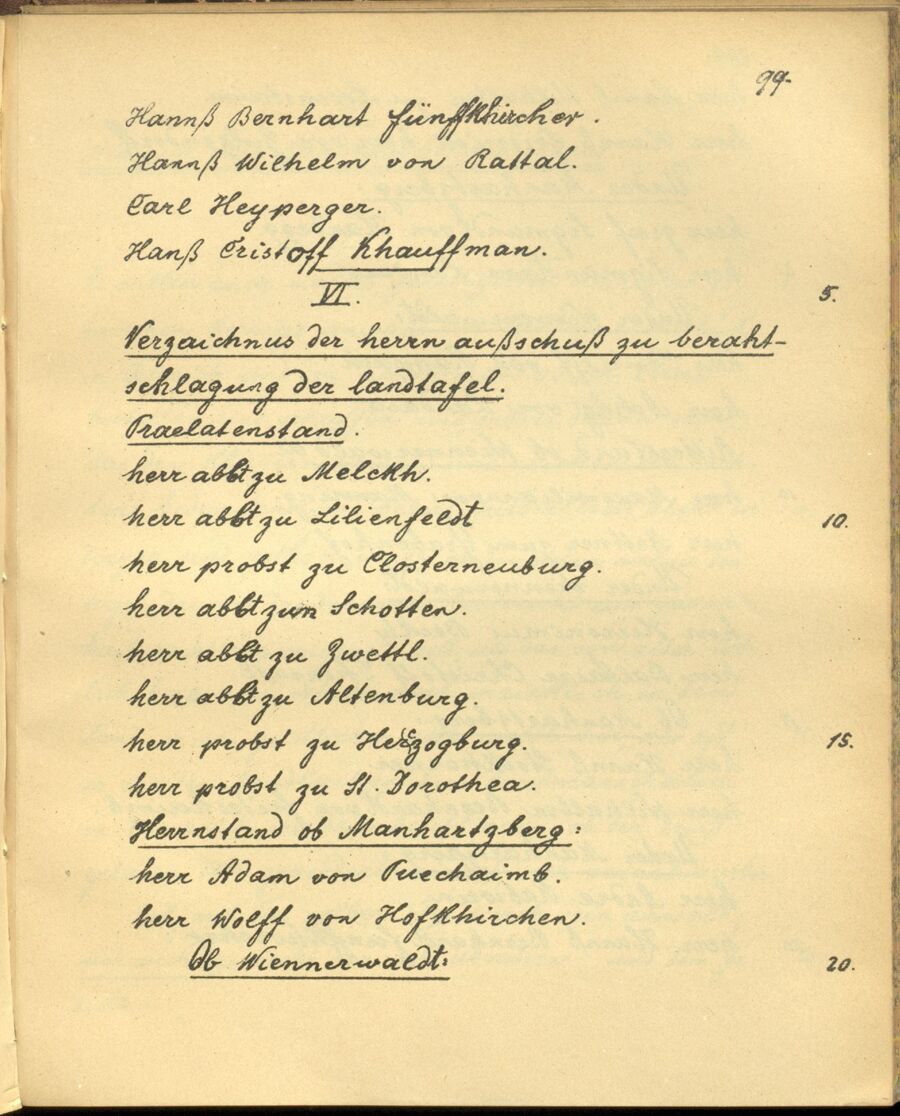 99.
Hannß Bernhart fünffkhircher.
Hannß Wilhelm von Rattal.
Carl Heyperger.
Hanß Cristoff Khauffman.
VI. 5.
Verzaichnus der herrn außschuß zu beraht-
schlagung der landtafel.
Praelatenstand.
herr abbt zu Melckh.
herr abbt zu Lilienfeldt 10.
herr probst zu Closterneuburg.
herr abbt zun Schotten.
herr abbt zu Zwettl.
herr abbt zu Altenburg.
herr probst zu Herzogburg. 15.
herr probst zu St. Dorothea.
Herrnstand ob Manhartzberg:
herr Adam von Puechaimb.
herr Wolff von Hofkhirchen.
Ob Wiennerwaldt: 20.